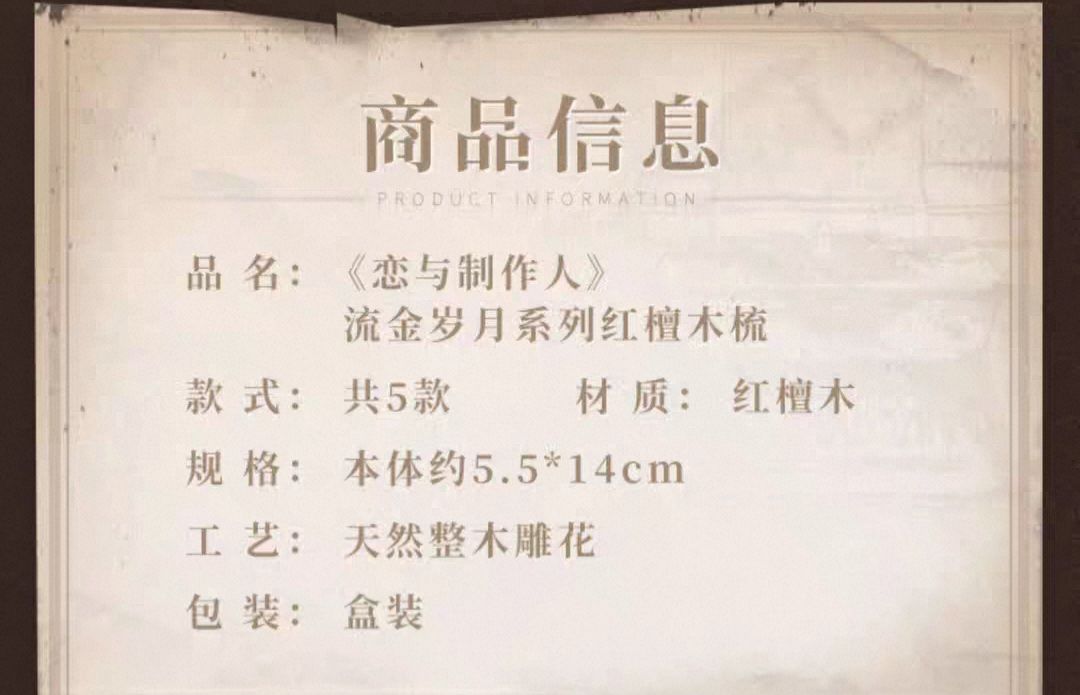 商品信息
PRODUCT INFORMATION
品 名：《恋与制作人》
流金岁月系列红檀木梳
款 式： 共5款 材 质： 红檀木
规 格： 本体约5.5*14cm
工 艺： 天然整木雕花
包 装： 盒装